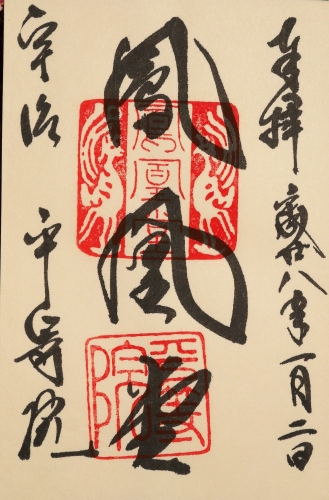 奉拝 平成廿八年一月二日
鳳凰堂
鳳凰堂
平等院
宇治 平等院